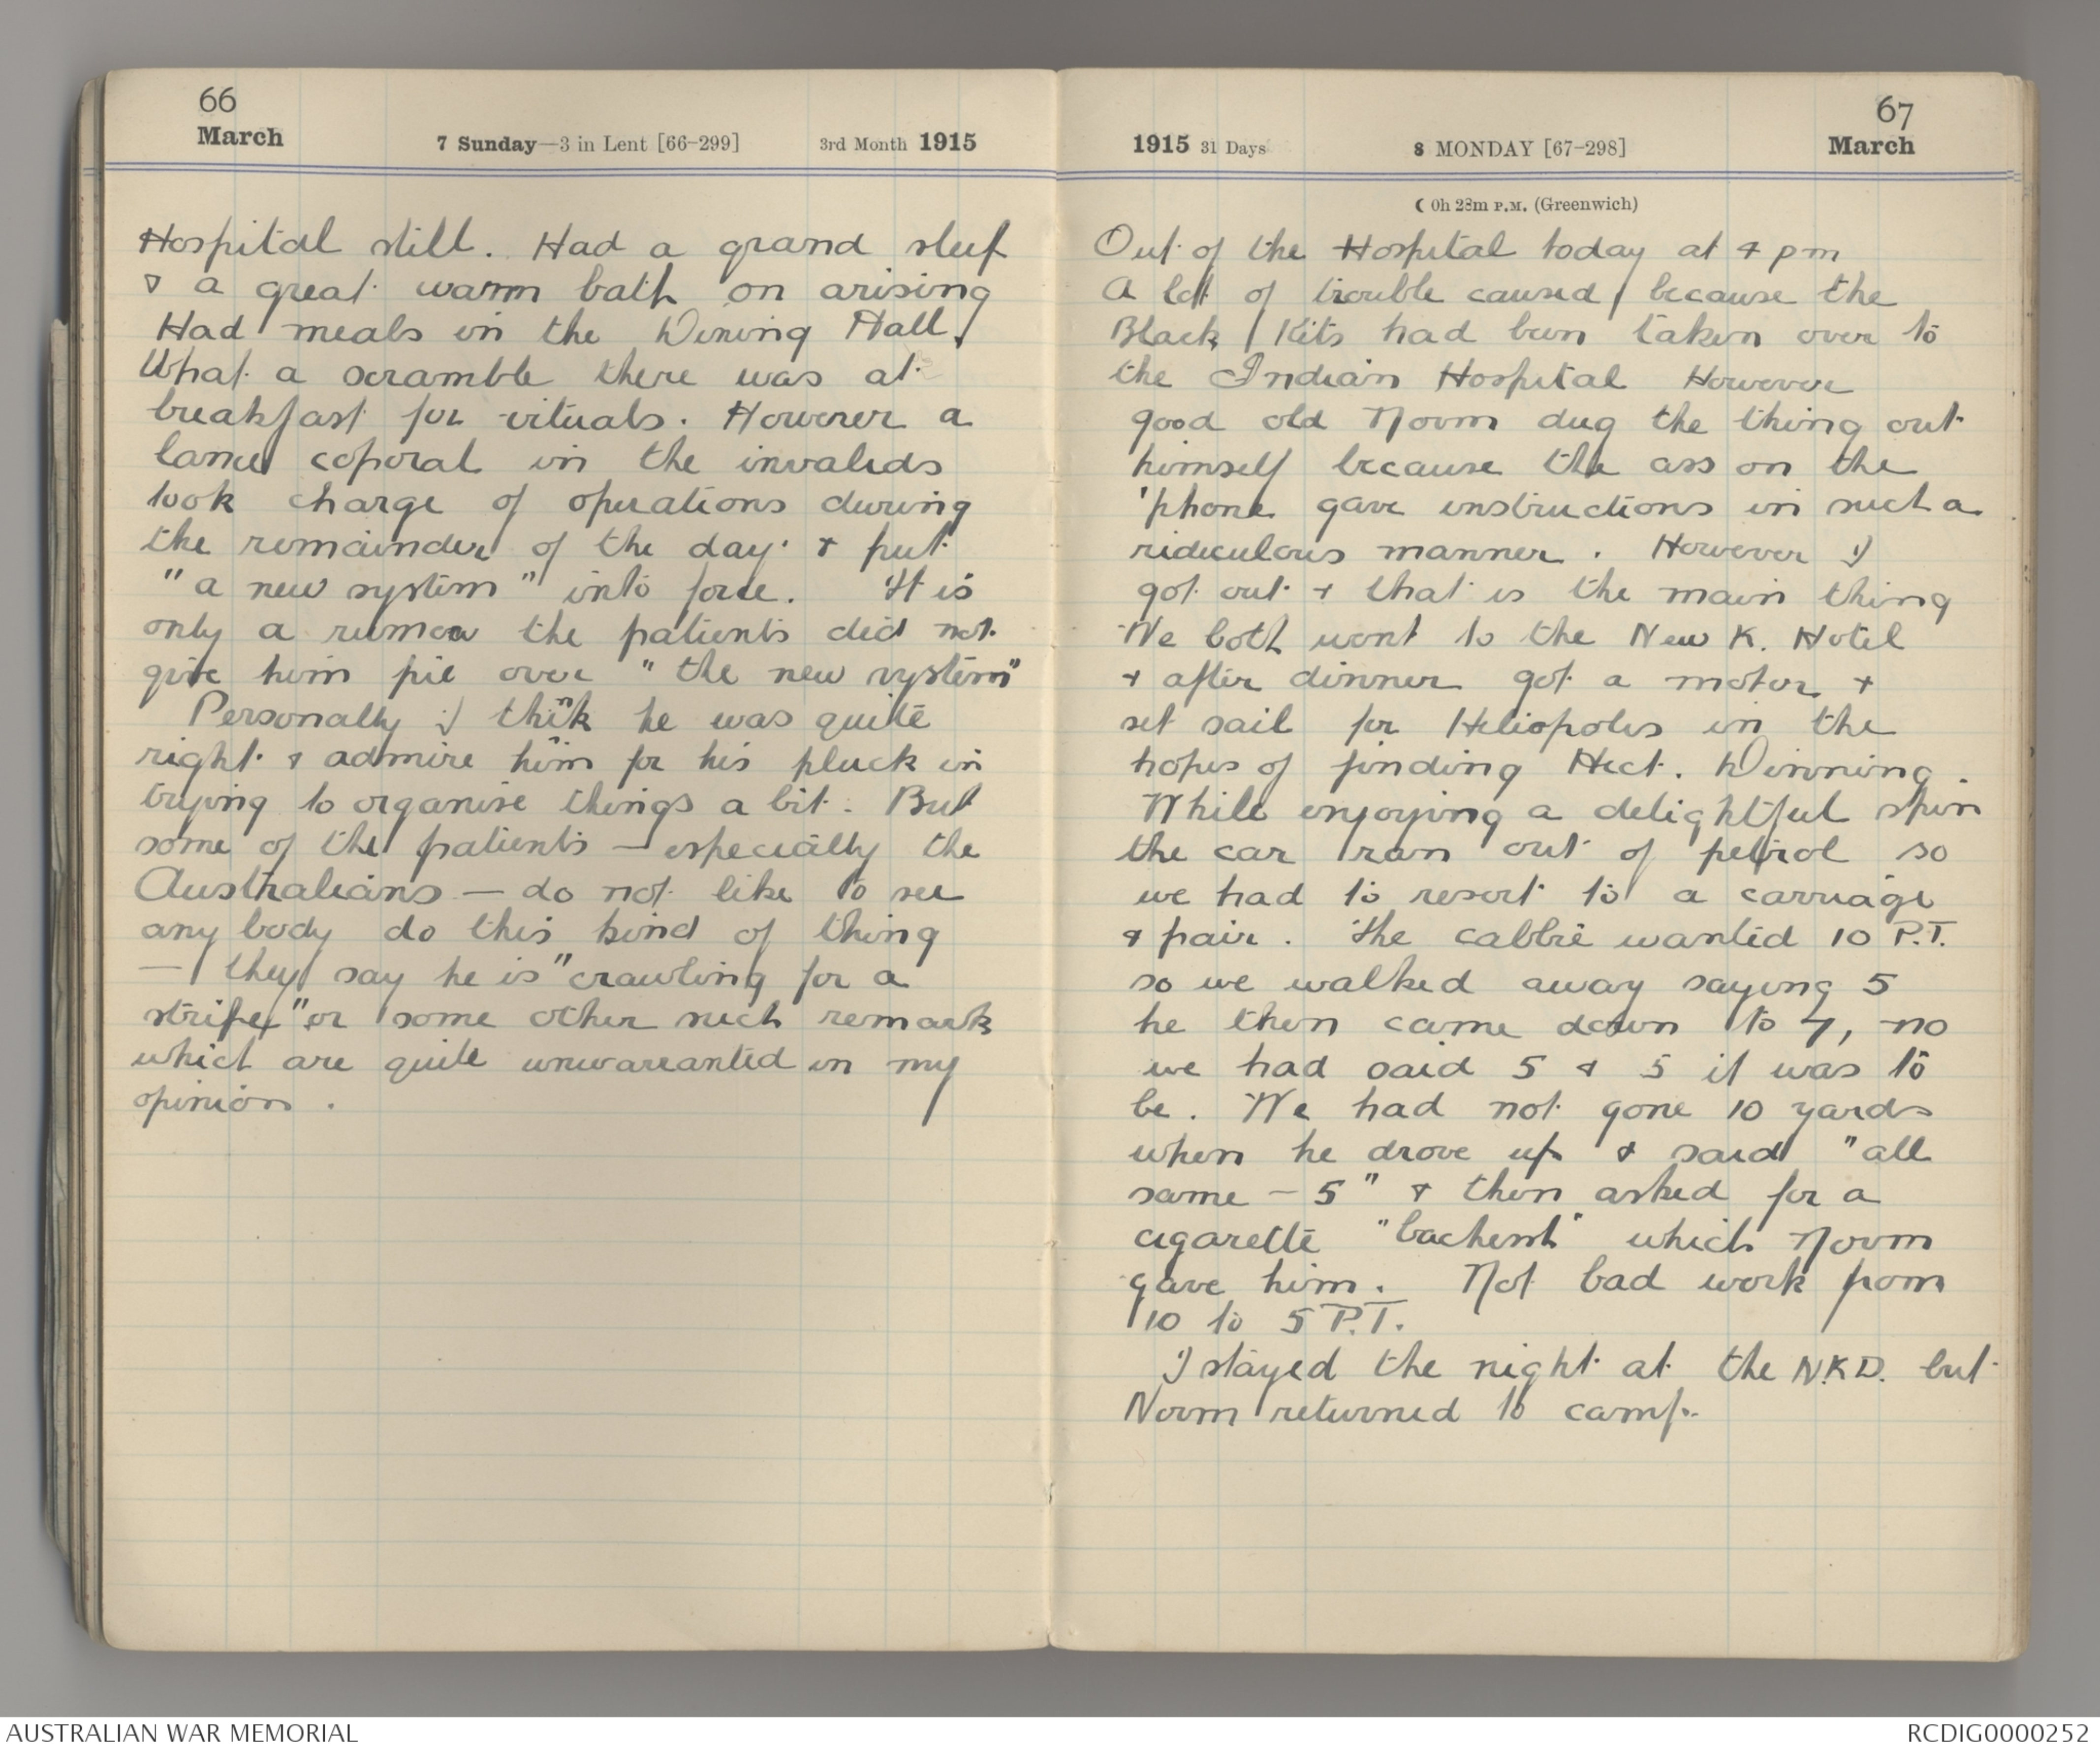 66
March 7 Sunday—3 in Lent [66-299] 3rd Month 1915
Hospital still. Had a grand sleep
& a great warm bath on arising
Had meals in the Dining Hall.
What a scramble there was at
breakfast for vituals. However a
lance coporal in the invalids
took charge of operations during
the remainder of the day & put
"a new system" into force. It is
only a rumor the patients did not
give him pie over "the new system"
Personally I think he was quite
right & admire him for his pluck in
trying to organise things a bit. But
some of the patients — especially the
Australians — do not like to see
any body do this kind of thing
— they say he is "crawling for a
stripe" or some other such remark
which are quite unwarranted in my
opinion.
67
1915 31 Days 8 MONDAY [67-298] March
☾ 0h 28m P.M. (Greenwich)
Out of the Hospital today at 4 pm
A lot of trouble caused because the
Black Kits had been taken over to
the Indian Hospital However
good old Norm dug the thing out
himself because the ass on the
'phone gave instructions in such a
ridiculous manner. However I
got out & that is the main thing
We both went to the New K. Hotel
& after dinner got a motor &
set sail for Heliopolis in the
hopes of finding Hect. Dinning.
While enjoying a delightful spin
the car ran out of petrol so
we had to resort to a carriage
& pair. The cabbie wanted 10 P.T.
so we walked away saying 5
he then came down to 7, no
we had said 5 & 5 it was to
be. We had not gone 10 yards
when he drove up & said "all
same - 5" & then asked for a
cigarette "which Norm
gave him. Not bad work from
10 to 5 P.T.
I stayed the night at the N.K.D. but
Norm returned to camp.
AUSTRALIAN WAR MEMORIAL
RCDIG0000252